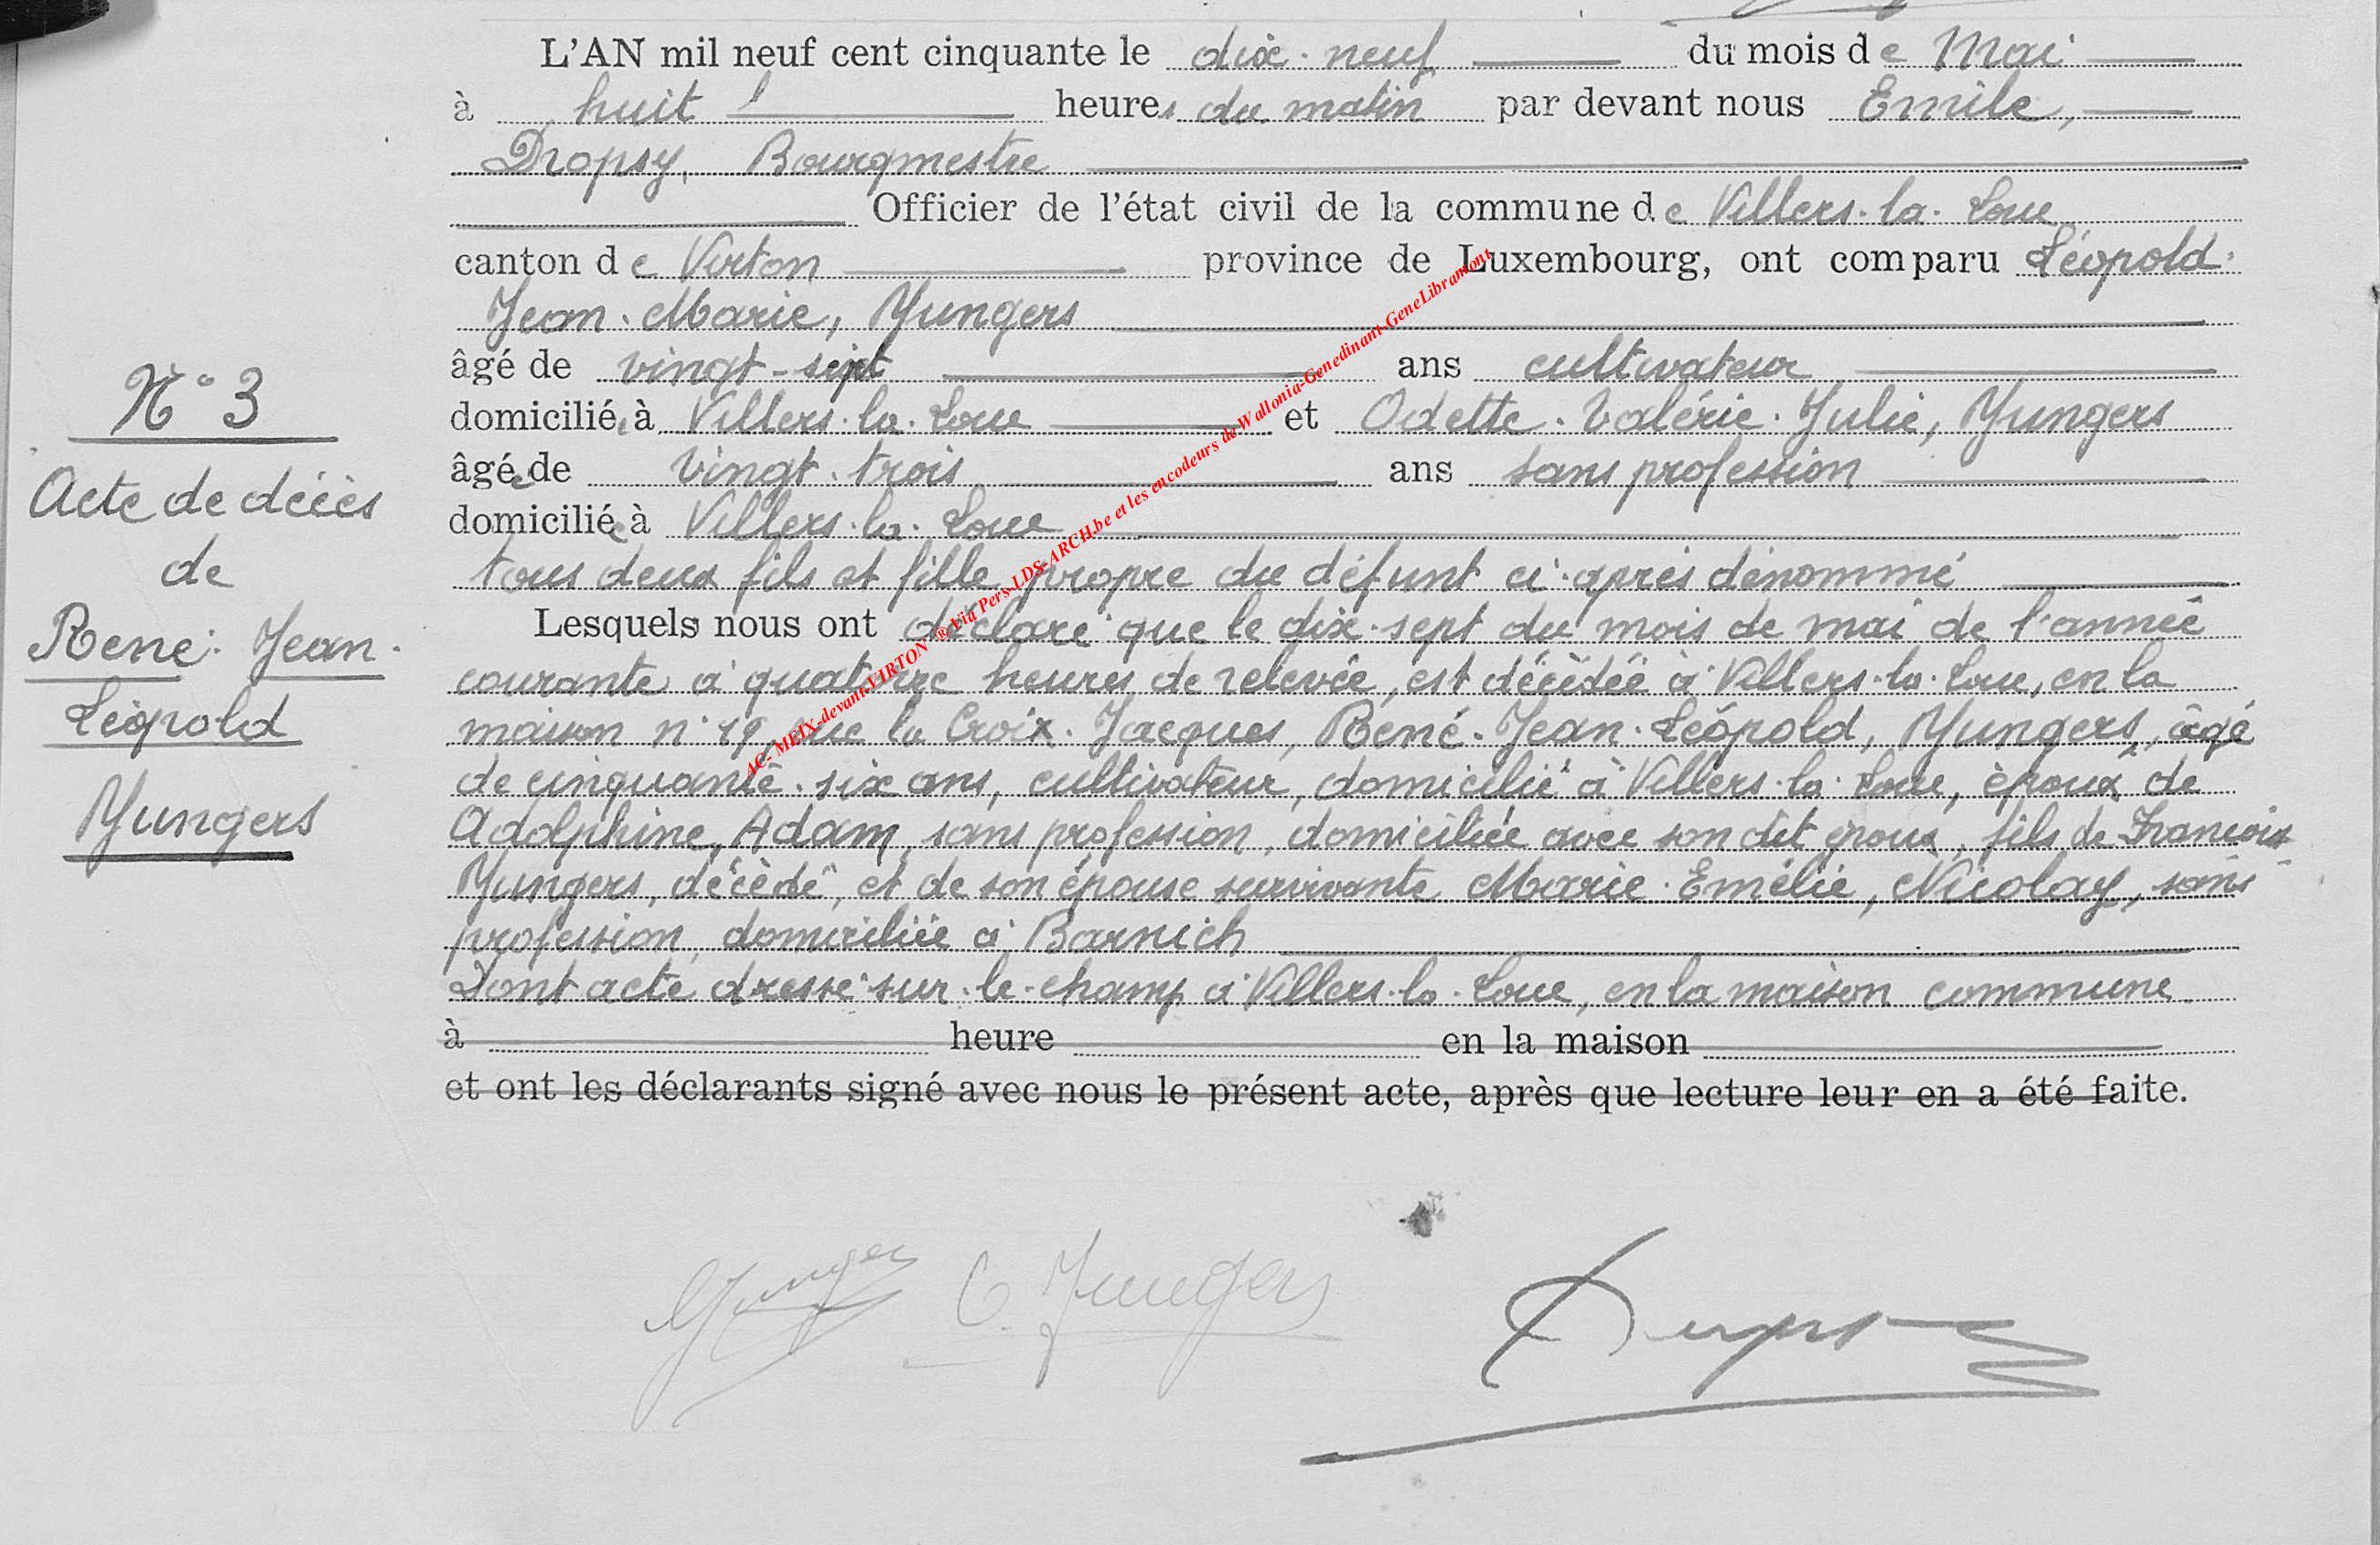 L'AN mil neuf cent cinquante le dix-neuf du mois de Mai
à huit heures du matin par devant nous Emile,
Dropsy, Bourgmestre
Officier de l'état civil de la commune de Villers-la-Loue
canton de Virton province de Luxembourg, ont comparu Léopold-
Jean-Marie, Yungers
âgé de vingt-sept ans cultivateur
domicilié à Villers-la-Loue et Odette-Valérie-Julie, Yungers
âgée de vingt-trois ans sans profession
domiciliée à Villers-la-Loue
tous deux fils et fille propre du défunt ci-après dénommé
Lesquels nous ont déclaré que le dix-sept du mois de mai de l'année
courante à quatorze heures de relevée, est décédéé à Villers-la-Loue, en la
maison n°19, rue la Croix-Jacques, René-Jean-Léopold, Yungers, âgé
de cinquante-six ans, cultivateur, domicilié à Villers-la-Loue, époux de
Adolphine, Adam, sans profession, domiciliée avec son dit époux, fils de François
Yungers, décédé, et de son épouse survivante Marie-Emélie, Nicolay, sans
profession, domiciliée à Barnich
Dont acte dressé sur-le-champ à Villers-la-Loue, en la maison commune
à heure en la maison
et ont les déclarants signé avec nous le présent acte, après que lecture leur en a été faite.
N° 3
Acte de décès
de
René-Jean-
Léopold
Yungers
Yungers O. Jungers Dropsy
AC- MEIX-devant-VIRTON ® Via Pers-LDS-ARCH.be et les encodeurs de Wallonia-Genedinant-GeneLibramont